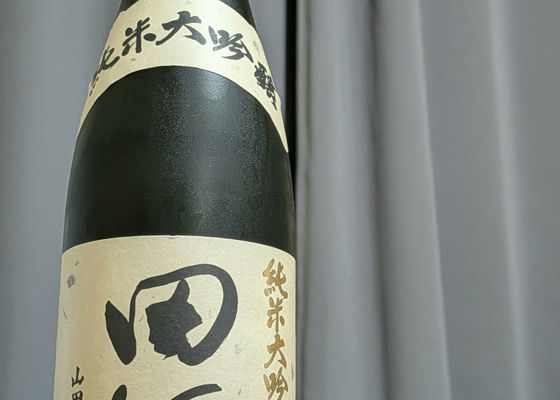 純米大吟醸
田
純米大吟
山田